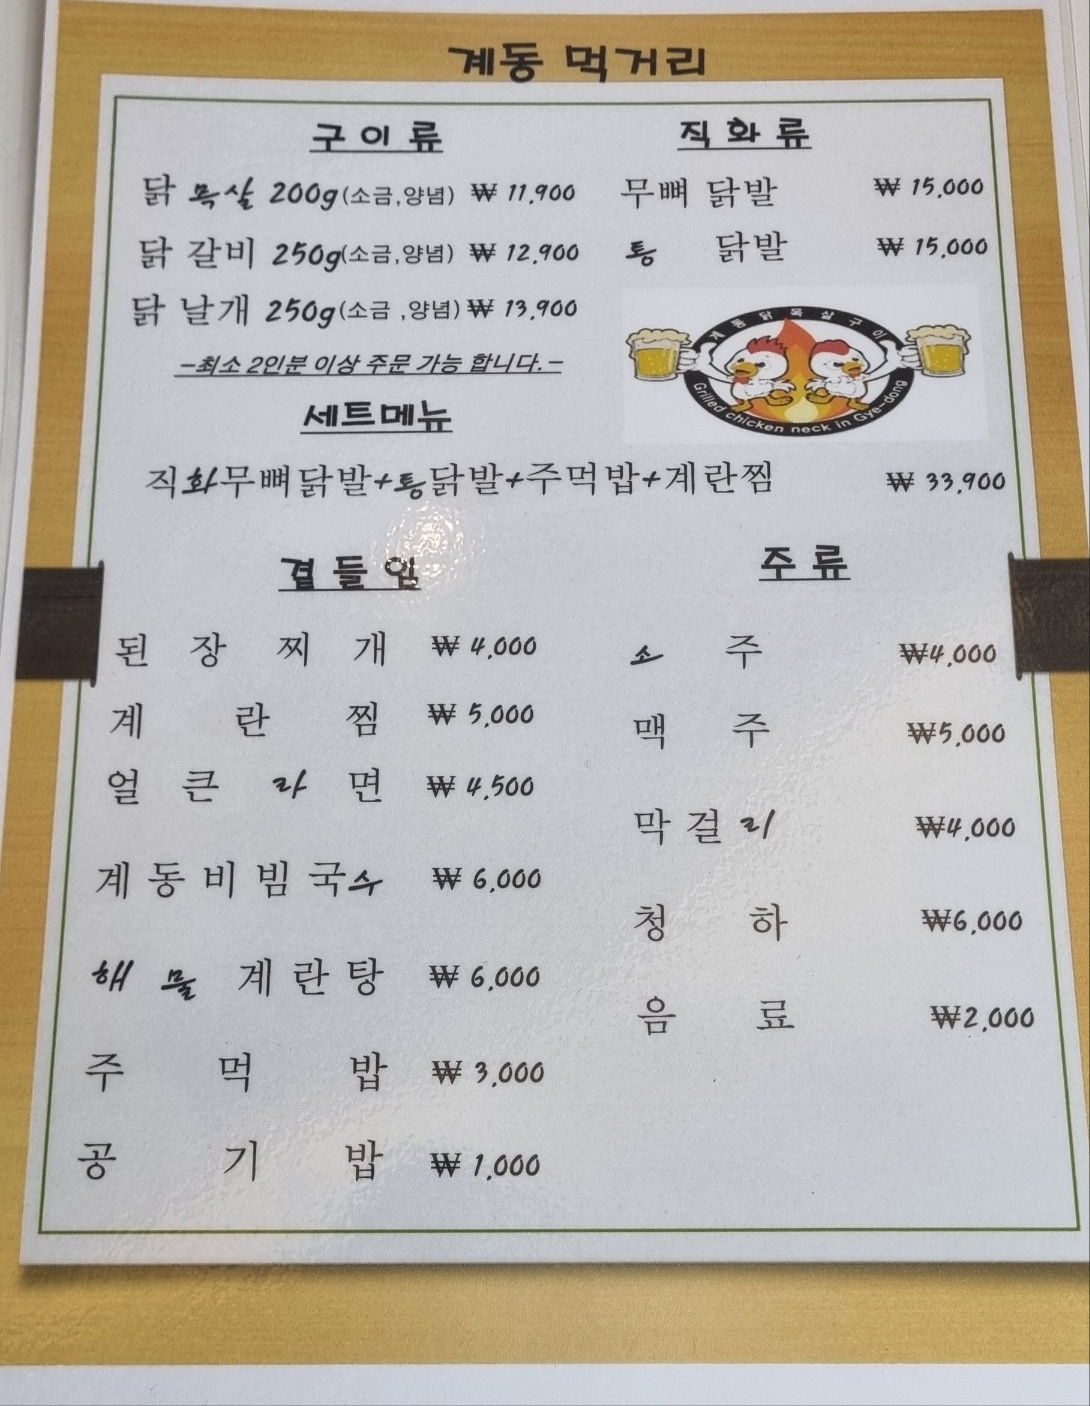 계동 먹거리
구이류
닭 목살 200g(소금,양념) ₩ 11,900
닭 갈비 250g(소금,양념) ₩ 12,900
닭 날개 250g(소금 ,양념) ₩ 13,900
-최소 2인분 이상 주문 가능 합니다.-
직화류
무뼈 닭발 ₩ 15,000
통 닭발 ₩ 15,000
계동닭목살구이
Grilled chicken neck in Gye-dong
세트메뉴
직화무뼈닭발+통닭발+주먹밥+계란찜 ₩ 33,900
곁들임
된장찌개 ₩ 4,000
계란찜 ₩ 5,000
얼큰라면 ₩ 4,500
계동비빔국수 ₩ 6,000
해물계란탕 ₩ 6,000
주먹밥 ₩ 3,000
공기밥 ₩ 1,000
주류
소주 ₩4,000
맥주 ₩5,000
막걸리 ₩4,000
청하 ₩6,000
음료 ₩2,000